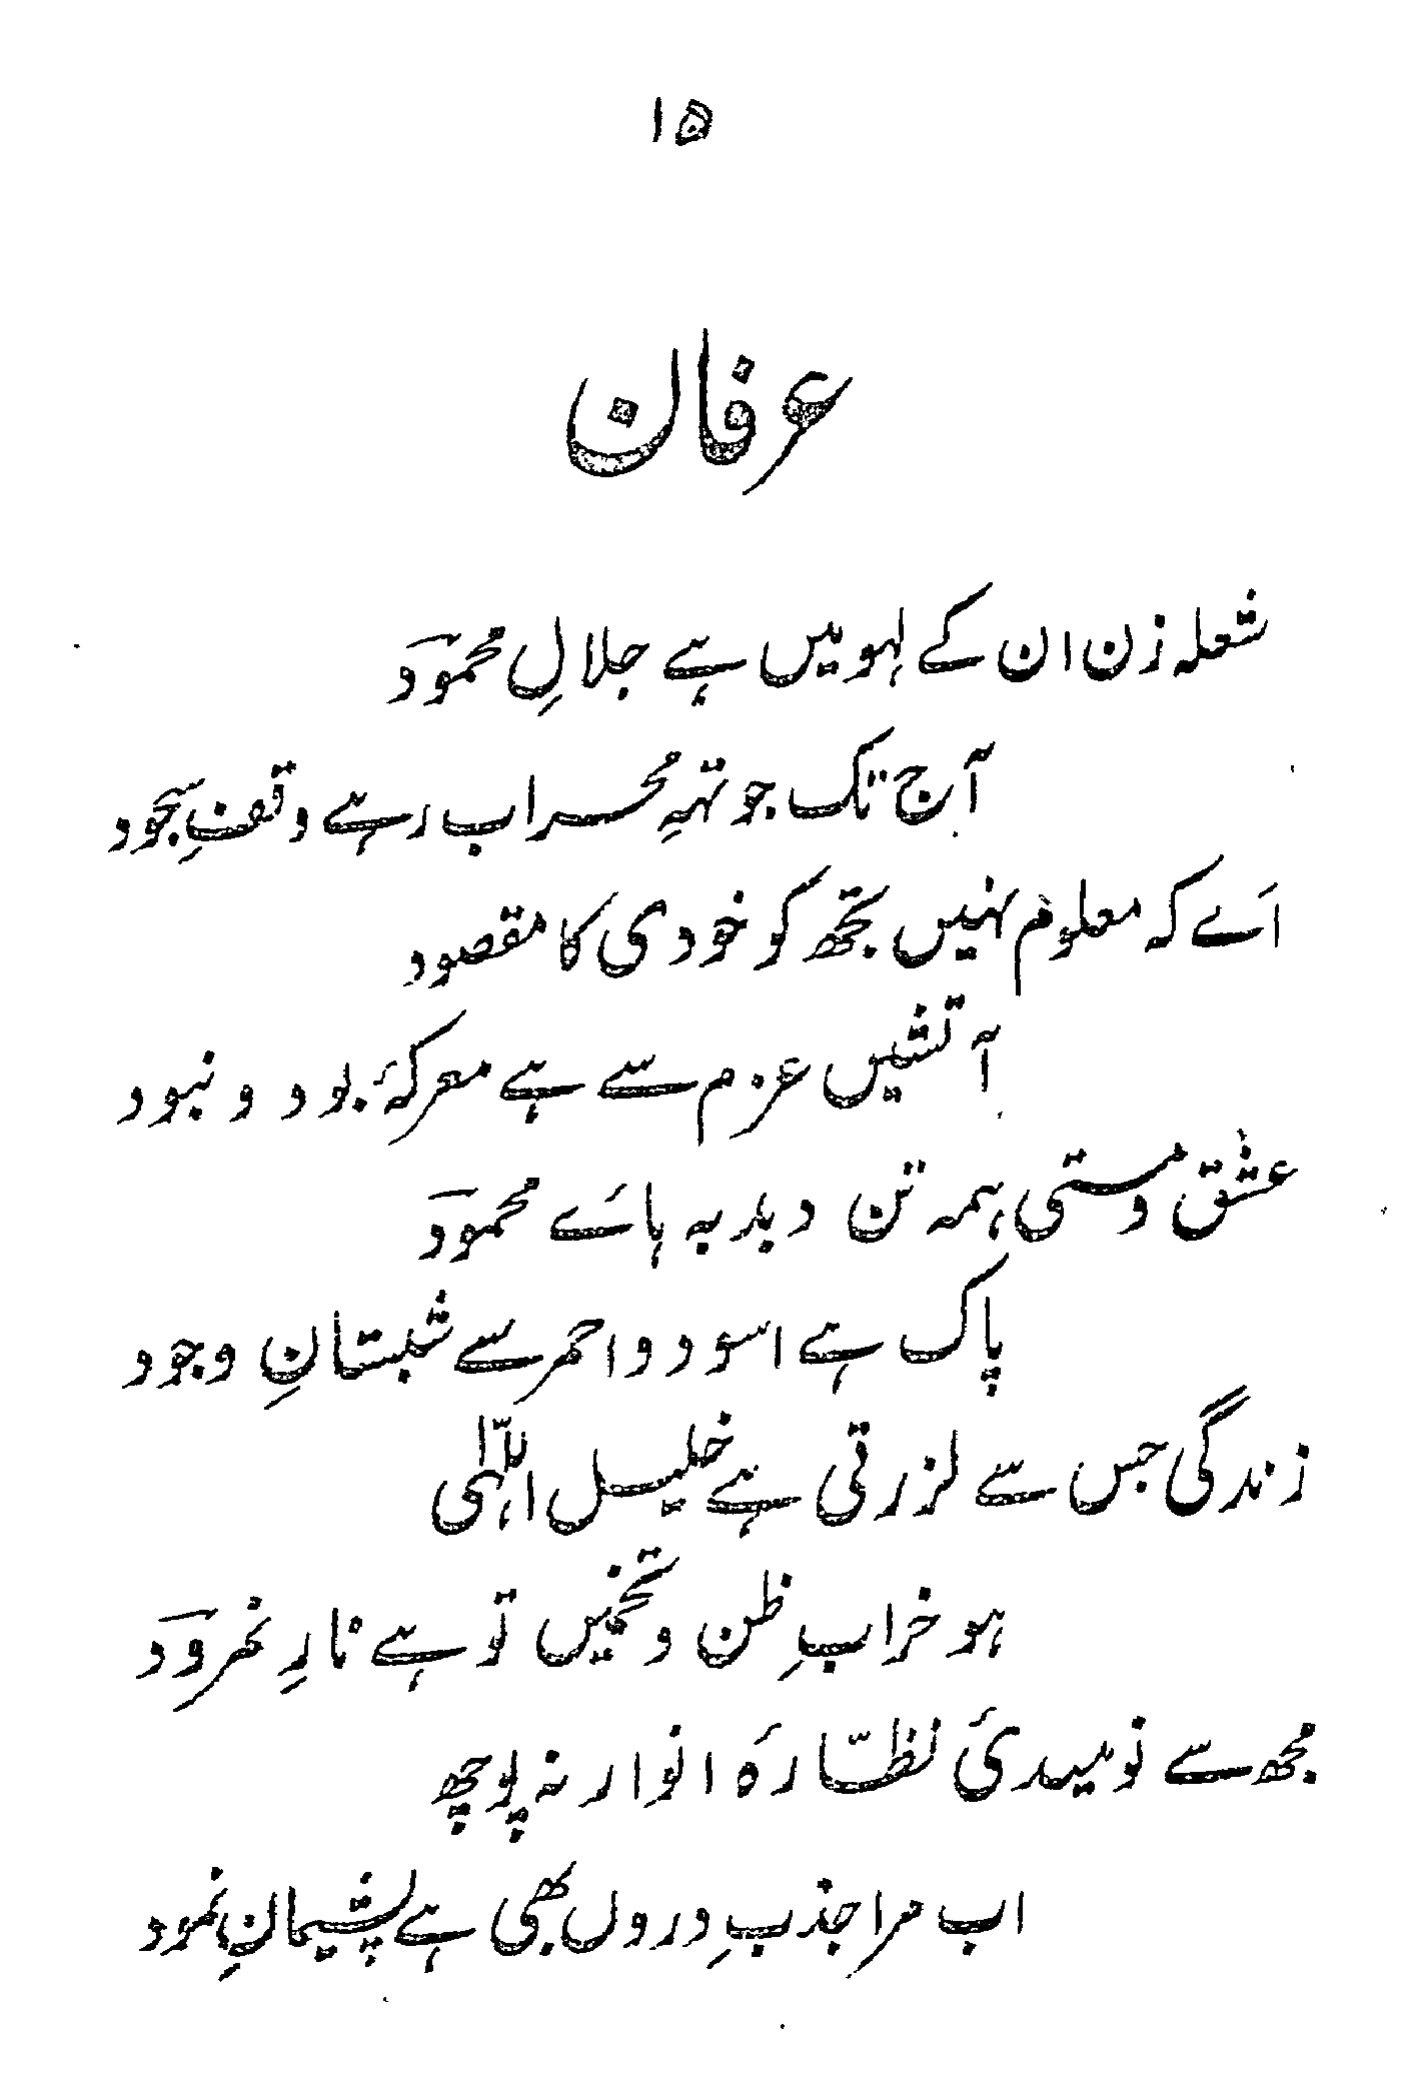 ۱۵
عرفان
شعلہ زن ان کے لہو میں ہے جلالِ محمودؔ
آج تک جو تہِ محراب رہے وقفِ سجود
اَے کہ معلوم نہیں تجھ کو خودی کا مقصود
آتشیں عزم سے ہے معرکۂ بود و نبود
عشق و مستی ہمہ تن دبدبہ ہائے محمودؔ
پاک ہے اسود و احمر سے شبستانِ وجود
زندگی جس سے لرزتی ہے خلیل اللّٰہی
ہو خرابِ ظن و تخمیں تو ہے نارِ نمرودؔ
مجھ سے نومیدئ نظّارہَ انوار نہ پوچھ
اب مرا جذبِ دروں بھی ہے پشیمانِ نمود